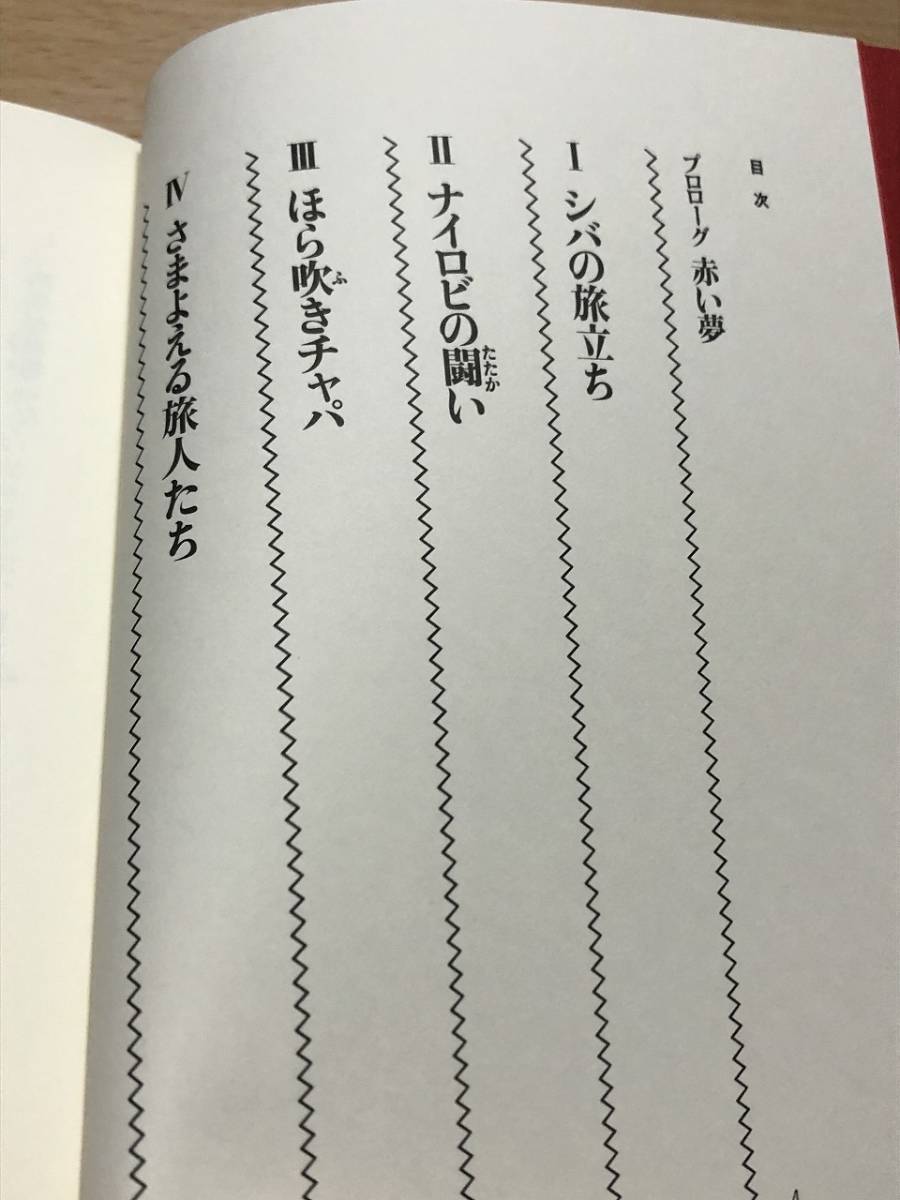 目次
プロローグ 赤い夢
Ⅰ シバの旅立ち
Ⅱ ナイロビの闘い
たたか
Ⅲ ほら吹きチャパ
ふ
Ⅳ さまよえる旅人たち